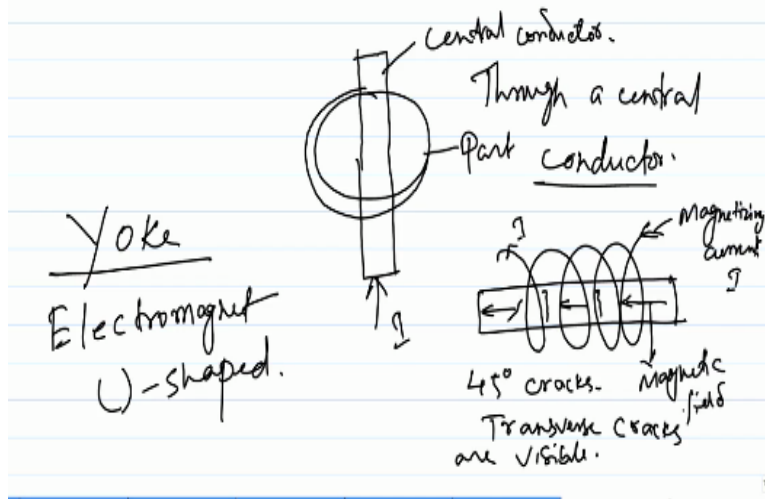 Central conductor.
Through a central
Part conductor.
Yoke
Electromagnet
U-shaped.
I
I
Magnetizing
current
I
45° cracks. Magnetic
field
Transverse cracks
are visible.